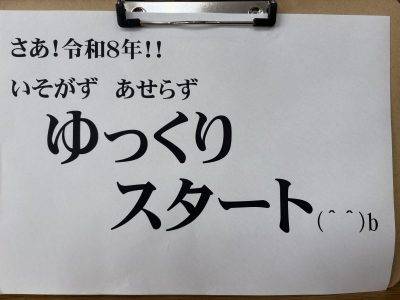 さあ!令和8年!!
いそがず　あせらず
ゆっくり
スタート(＾＾)b